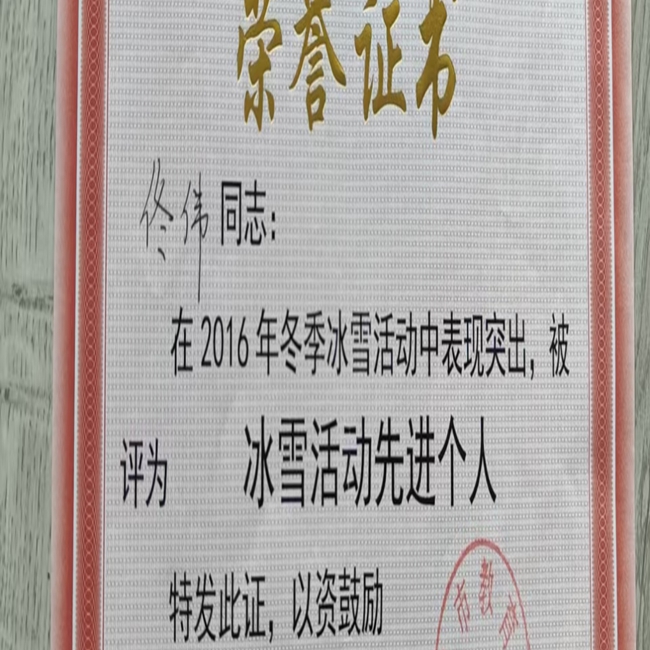 荣誉证书
佟伟同志：
在2016年冬季冰雪活动中表现突出，被
评为 冰雪活动先进个人
特发此证，以资鼓励
市教育